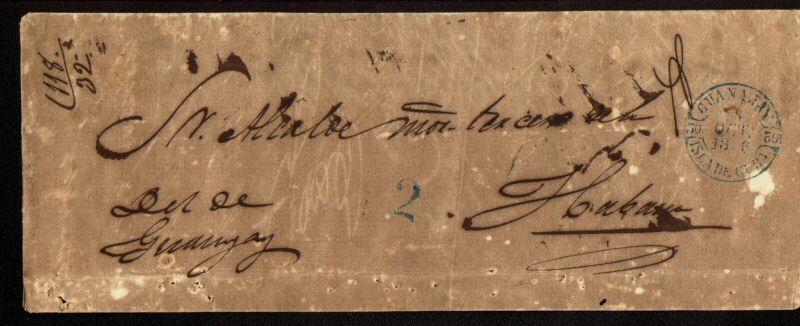 118.
32.
Sr. Alcalde mor. tercero de la
Habana
Del de
Guanajay
2
GUANAJAY
ISLA DE CUBA